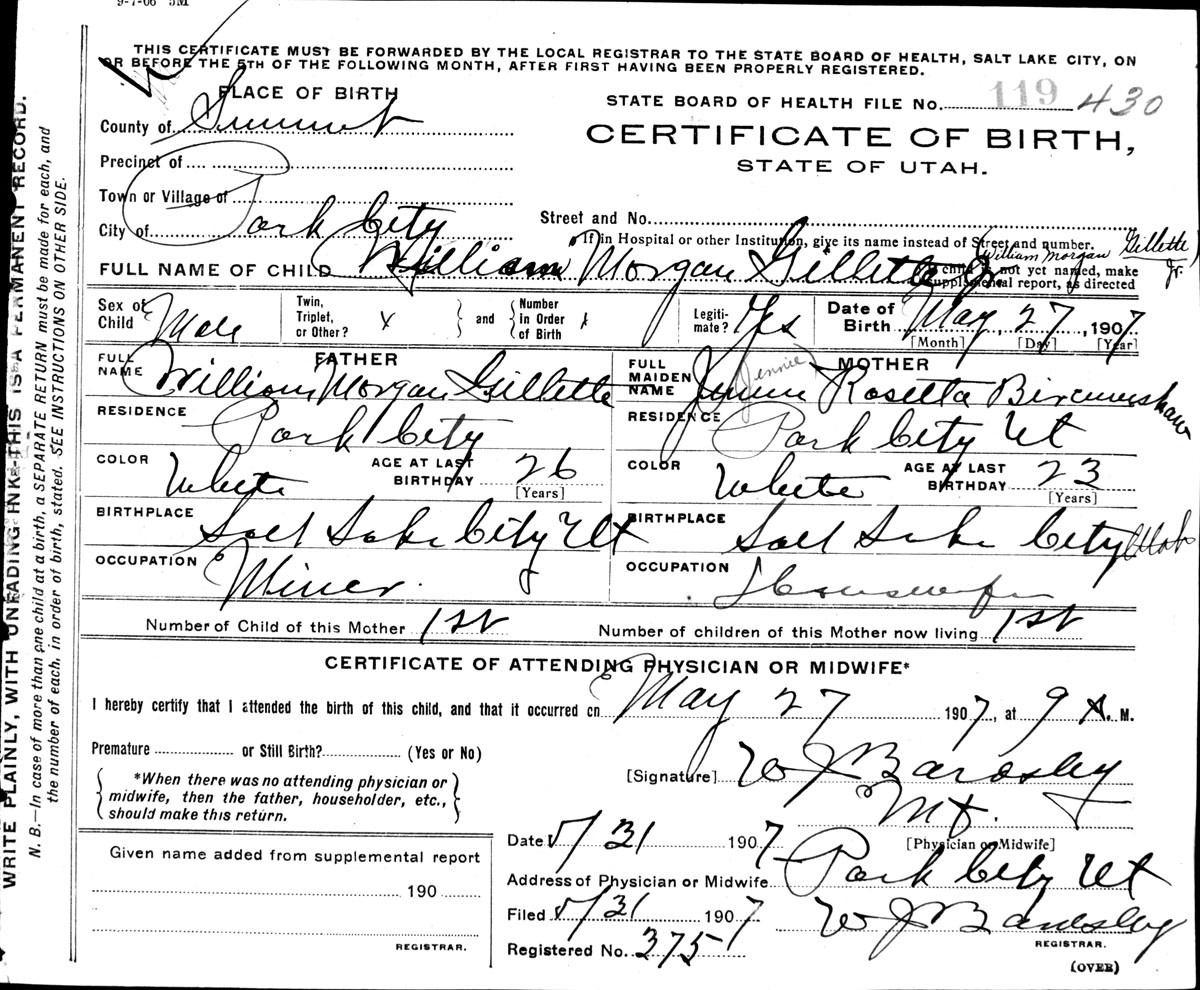 9-7-06 5M
THIS CERTIFICATE MUST BE FORWARDED BY THE LOCAL REGISTRAR TO THE STATE BOARD OF HEALTH, SALT LAKE CITY, ON
OR BEFORE THE 5TH OF THE FOLLOWING MONTH, AFTER FIRST HAVING BEEN PROPERLY REGISTERED.
WRITE PLAINLY, WITH UNFADING INK—THIS IS A PERMANENT RECORD.
N. B.—In case of more than one child at a birth, a SEPARATE RETURN must be made for each, and
the number of each, in order of birth, stated. SEE INSTRUCTIONS ON OTHER SIDE.
PLACE OF BIRTH
STATE BOARD OF HEALTH FILE No. 119 430
County of Summit
CERTIFICATE OF BIRTH,
STATE OF UTAH.
Precinct of
Town or Village of
City of Park City
Street and No.
If in Hospital or other Institution, give its name instead of Street and number.
William Morgan Gillette Jr.
FULL NAME OF CHILD William Morgan Gillette Jr
If child is not yet named, make
supplemental report, as directed
Sex of Child Male
Twin, Triplet, or Other? X and Number in Order of Birth
Legitimate? Yes
Date of Birth May, 27, 1907
[Month] [Day] [Year]
FATHER
FULL NAME William Morgan Gillette
RESIDENCE Park City
COLOR White AGE AT LAST BIRTHDAY 26
[Years]
BIRTHPLACE Salt Lake City Ut
OCCUPATION Miner.
MOTHER
FULL MAIDEN NAME Jennie Rosetta Bircumshaw
Jennie
RESIDENCE Park City Ut
COLOR White AGE AT LAST BIRTHDAY 23
[Years]
BIRTHPLACE Salt Lake City Utah
OCCUPATION Housewife
Number of Child of this Mother 1st Number of children of this Mother now living 1st
CERTIFICATE OF ATTENDING PHYSICIAN OR MIDWIFE*
I hereby certify that I attended the birth of this child, and that it occurred on May 27 1907, at 9 A. M.
Premature or Still Birth? (Yes or No)
*When there was no attending physician or
midwife, then the father, householder, etc.,
should make this return.
[Signature] W J Bardsley
[Physician or Midwife]
Given name added from supplemental report
190
REGISTRAR.
Date 5/31 1907
Address of Physician or Midwife Park City Ut
Filed 5/31 1907 W J Bardsley
REGISTRAR.
Registered No. 375
(OVER)